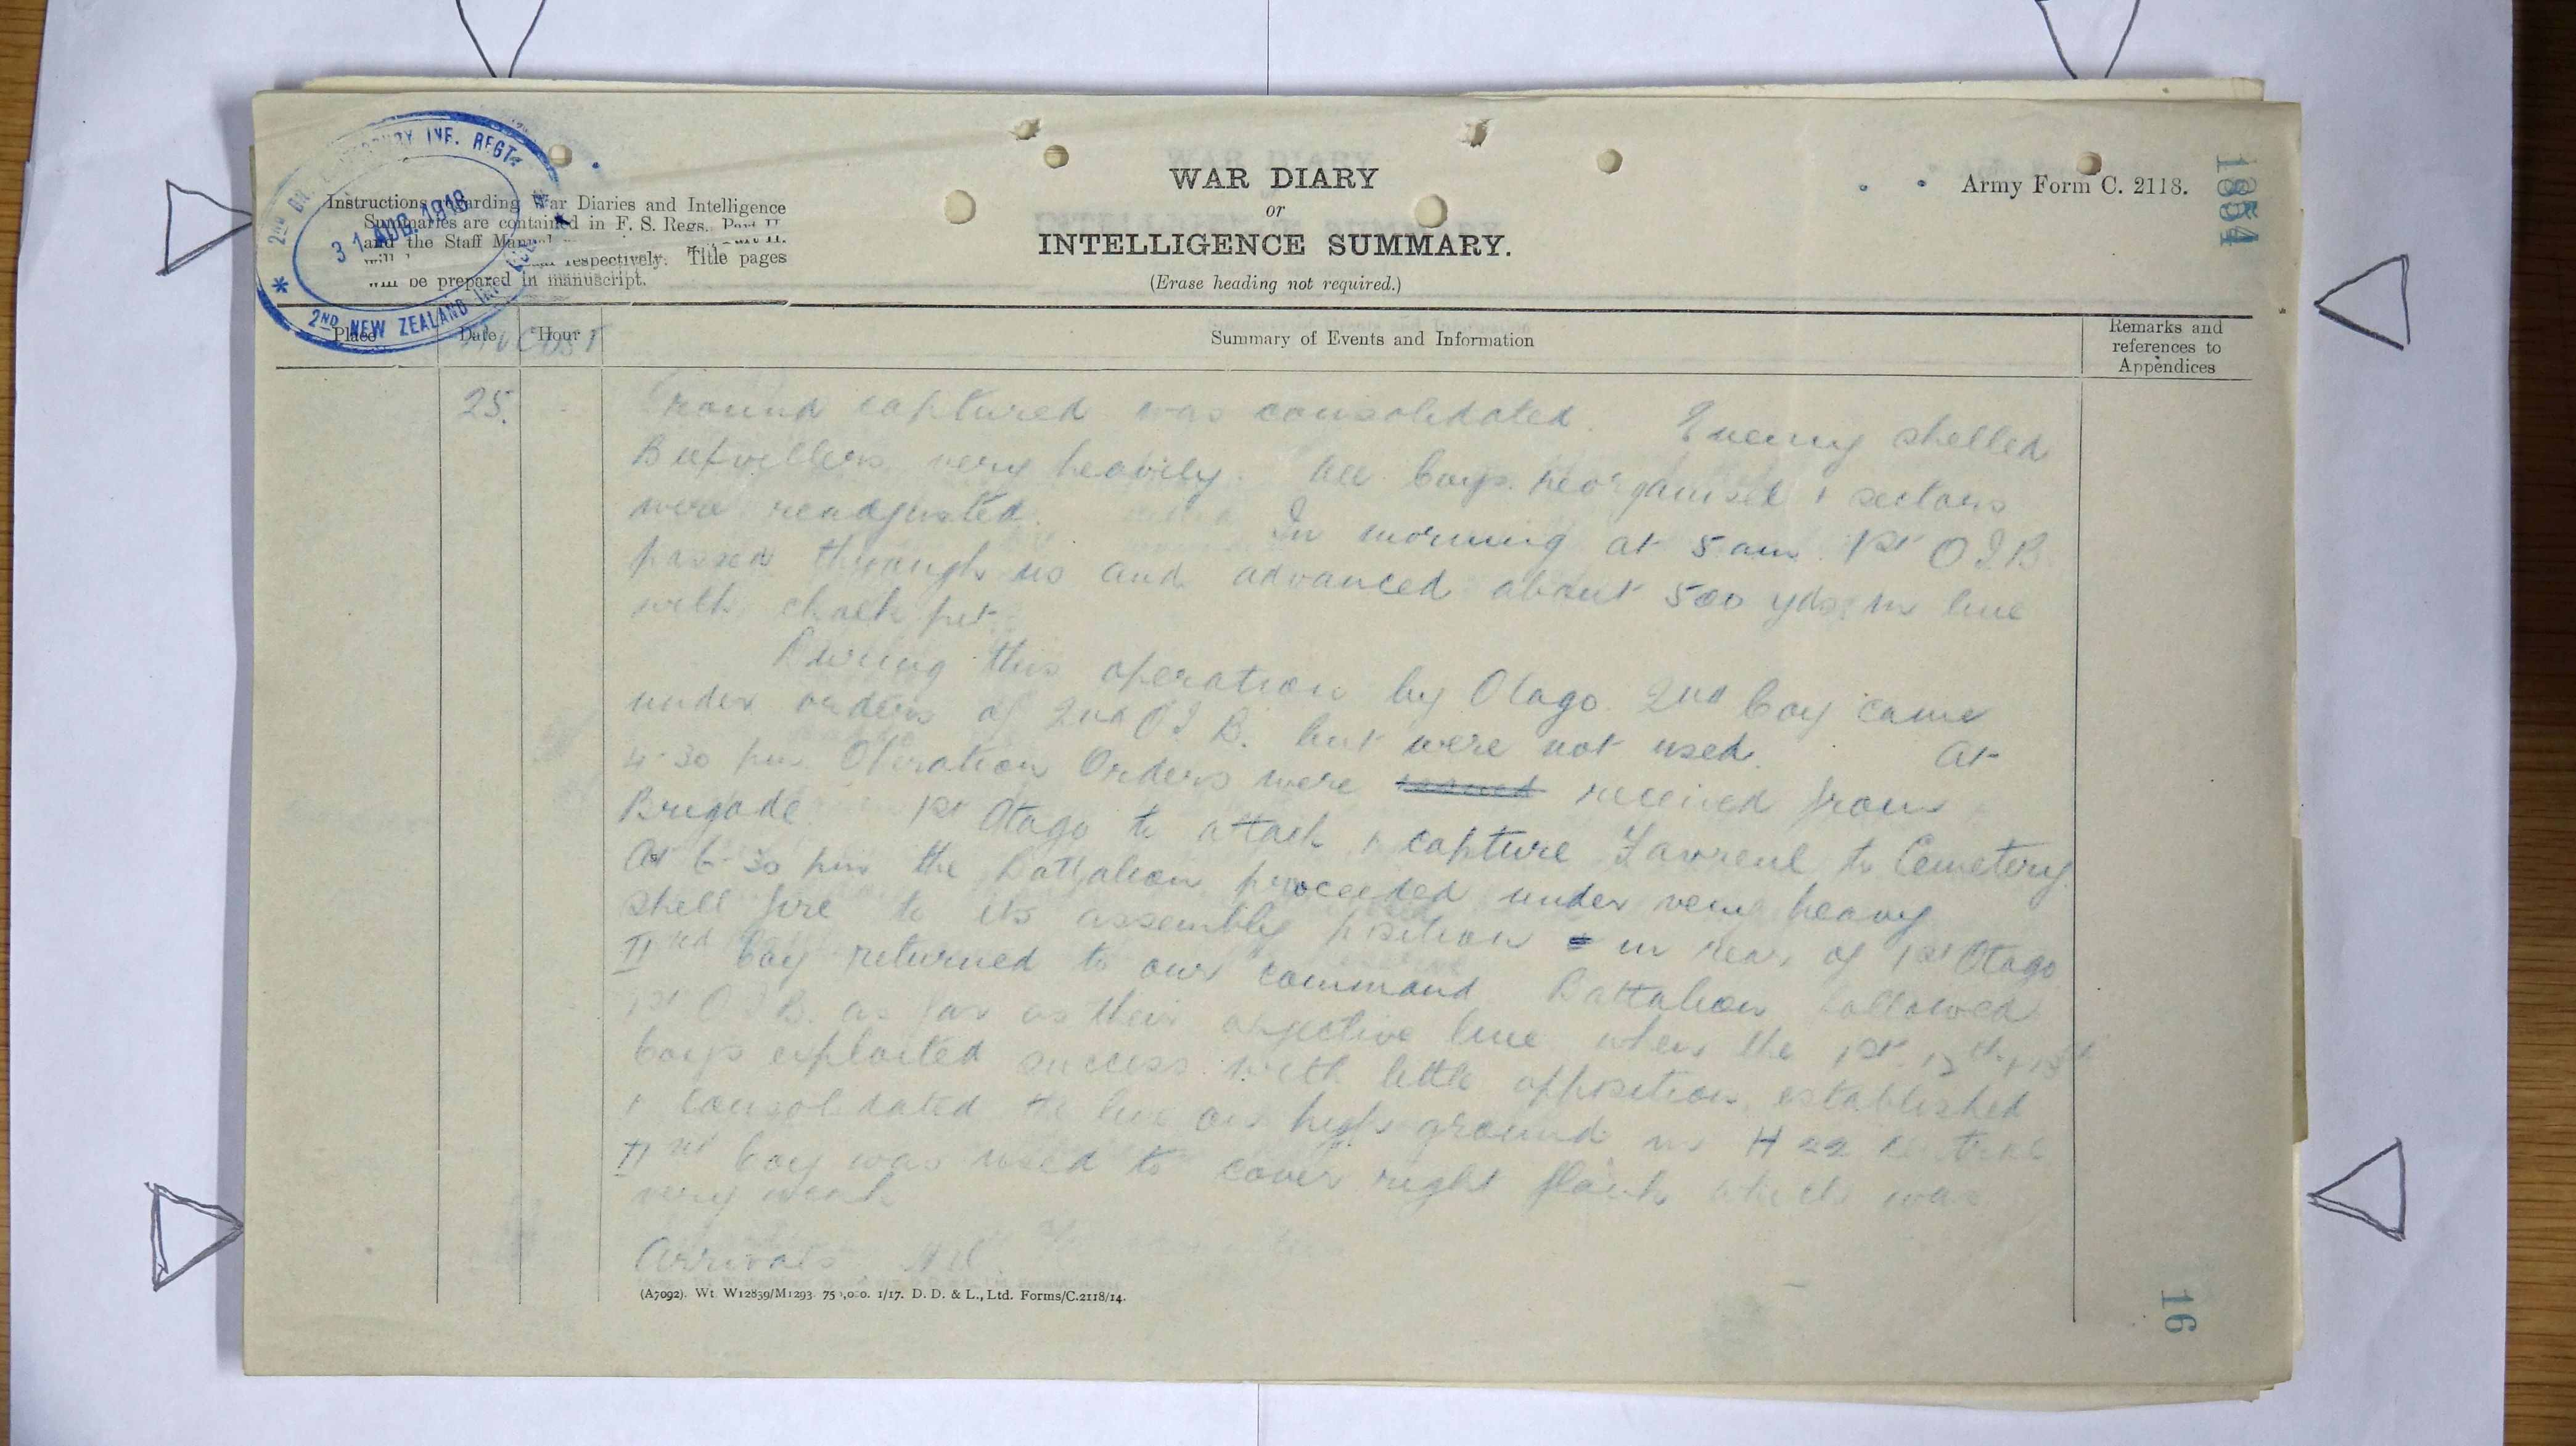 2ND BN. CANTERBURY INF. REGT.
31 AUG. 1918
2ND NEW ZEALAND INF. BDE
Instructions regarding War Diaries and Intelligence
Summaries are contained in F. S. Regs. Part II.
and the Staff Manual
respectively. Title pages
will be prepared in manuscript.
WAR DIARY
or
INTELLIGENCE SUMMARY.
(Erase heading not required.)
Army Form C. 2118.
Place
Date
Hour
AUGUST
Summary of Events and Information
Remarks and
references to
Appendices
25. Ground captured was consolidated. Enemy shelled
Biefvillers very heavily. All Coys. reorganised & sectors
were readjusted. In morning at 5 am 1st O.I.B.
passed through us and advanced about 500 yds in line
with chalk pit.
During this operation by Otago 2nd Coy came
under orders of 2nd O.I.B. but were not used. At
4-30 pm Operation Orders were issued received from
Brigade 1st Otago to attack & capture Favreuil to Cemetery.
At 6-30 pm the Battalion proceeded under very heavy
shell fire to its assembly position in rear of 1st Otago
IInd Coy returned to our command. Battalion followed
1st O.I.B. as far as their objective line when the 1st 12th & 13th
Coys exploited success with little opposition, established
& consolidated the line on high ground in H 22 Central
IInd Coy was used to cover right flank which was
very weak
Arrivals Nil.
(A7092). Wt. W12839/M1293. 750,000. 1/17. D. D. & L., Ltd. Forms/C.2118/14.
16